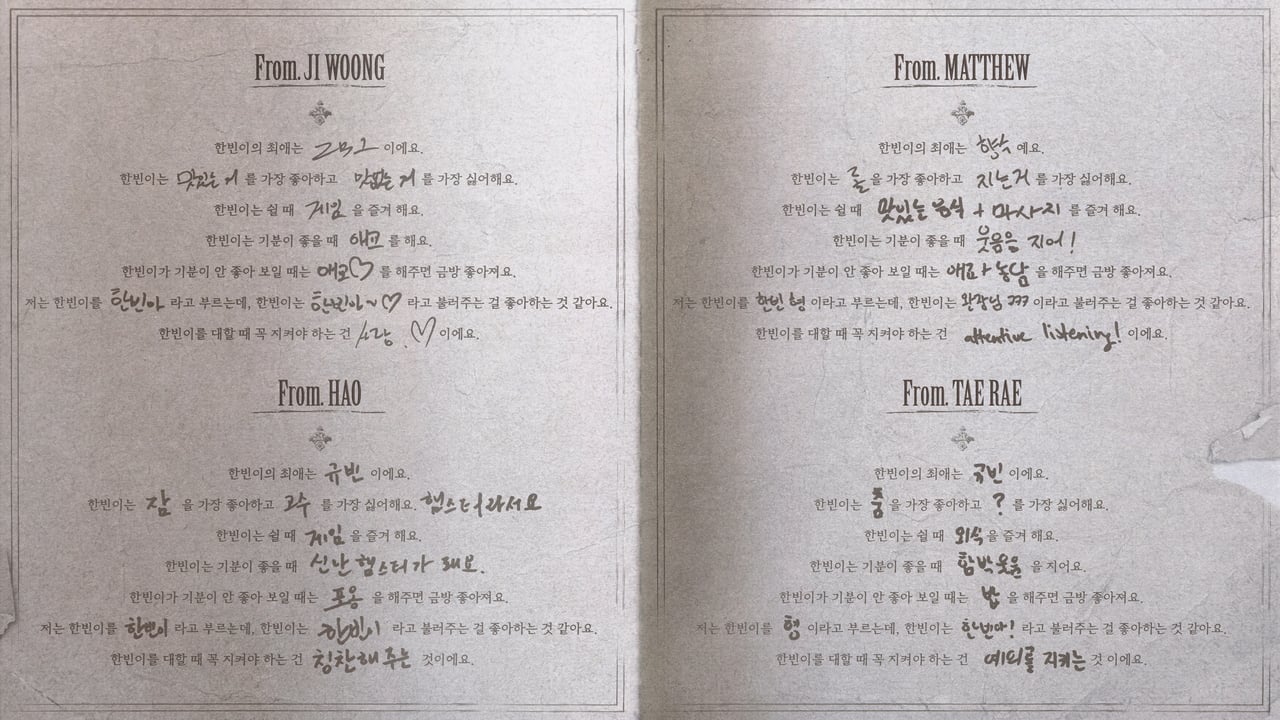 From. JI WOONG
한빈이의 최애는 이에요.
한빈이는 맛있는 거 를 가장 좋아하고 맛없는 거 를 가장 싫어해요.
한빈이는 쉴 때 게임 을 즐겨 해요.
한빈이는 기분이 좋을 때 애교 를 해요.
한빈이가 기분이 안 좋아 보일 때는 애교♡ 를 해주면 금방 좋아져요.
저는 한빈이를 한빈아 라고 부르는데, 한빈이는 한빈아~♡ 라고 불러주는 걸 좋아하는 것 같아요.
한빈이를 대할 때 꼭 지켜야 하는 건 사랑.♡ 이에요.
From. HAO
한빈이의 최애는 규빈 이에요.
한빈이는 잠 을 가장 좋아하고 고수 를 가장 싫어해요. 햄스터라서요
한빈이는 쉴 때 게임 을 즐겨 해요.
한빈이는 기분이 좋을 때 신난 햄스터가 돼요.
한빈이가 기분이 안 좋아 보일 때는 포옹 을 해주면 금방 좋아져요.
저는 한빈이를 한빈이 라고 부르는데, 한빈이는 라고 불러주는 걸 좋아하는 것 같아요.
한빈이를 대할 때 꼭 지켜야 하는 건 칭찬해 주는 것이에요.
From. MATTHEW
한빈이의 최애는 예요.
한빈이는 을 가장 좋아하고 지는거 를 가장 싫어해요.
한빈이는 쉴 때 맛있는 음식 + 마사지 를 즐겨 해요.
한빈이는 기분이 좋을 때 웃음을 지어!
한빈이가 기분이 안 좋아 보일 때는 애교나 농담 을 해주면 금방 좋아져요.
저는 한빈이를 한빈 형 이라고 부르는데, 한빈이는 왕자님 ㅋㅋㅋ 이라고 불러주는 걸 좋아하는 것 같아요.
한빈이를 대할 때 꼭 지켜야 하는 건 attentive listening! 이에요.
From. TAE RAE
한빈이의 최애는 국빈 이에요.
한빈이는 춤 을 가장 좋아하고 ? 를 가장 싫어해요.
한빈이는 쉴 때 외식 을 즐겨 해요.
한빈이는 기분이 좋을 때 함박웃음 을 지어요.
한빈이가 기분이 안 좋아 보일 때는 밥 을 해주면 금방 좋아져요.
저는 한빈이를 형 이라고 부르는데, 한빈이는 한빈아! 라고 불러주는 걸 좋아하는 것 같아요.
한빈이를 대할 때 꼭 지켜야 하는 건 예의를 지키는 것 이에요.